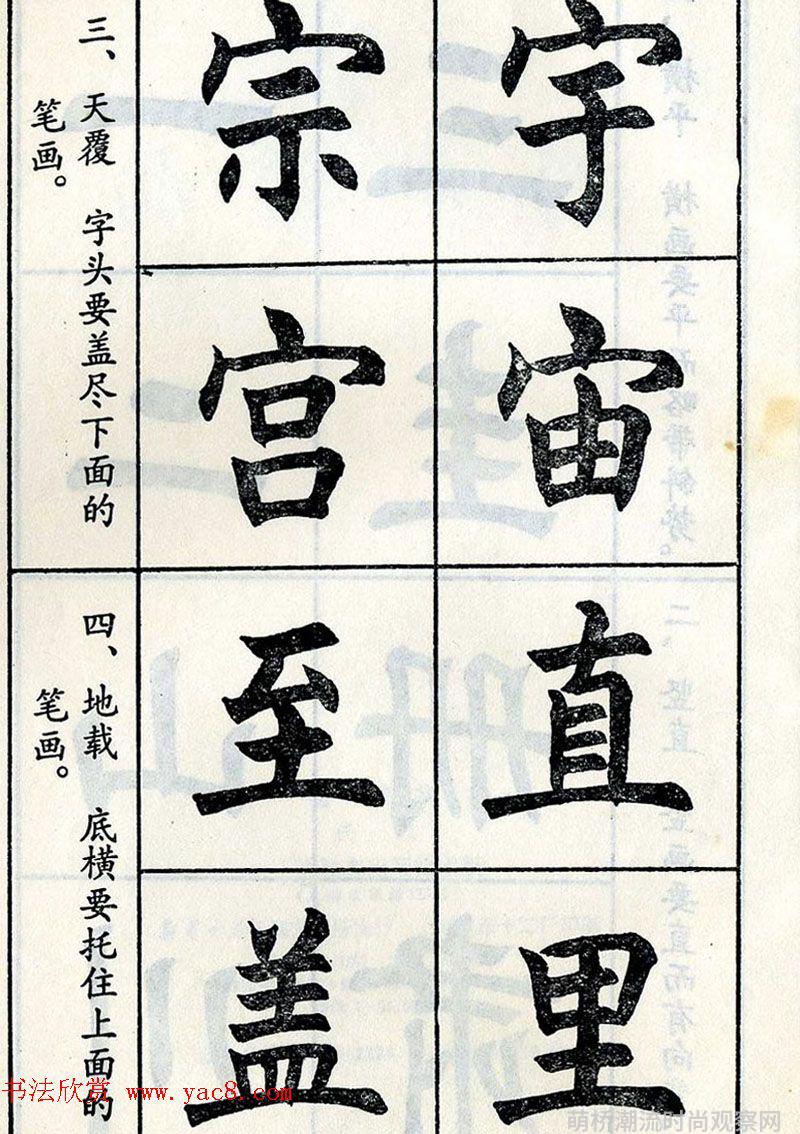 宇宙
宗宫
三、天覆 字头要盖尽下面的
笔画。
直里
至盖
四、地载 底横要托住上面的
笔画。
书法欣赏 www.yac8.com
萌桥潮流时尚观察网